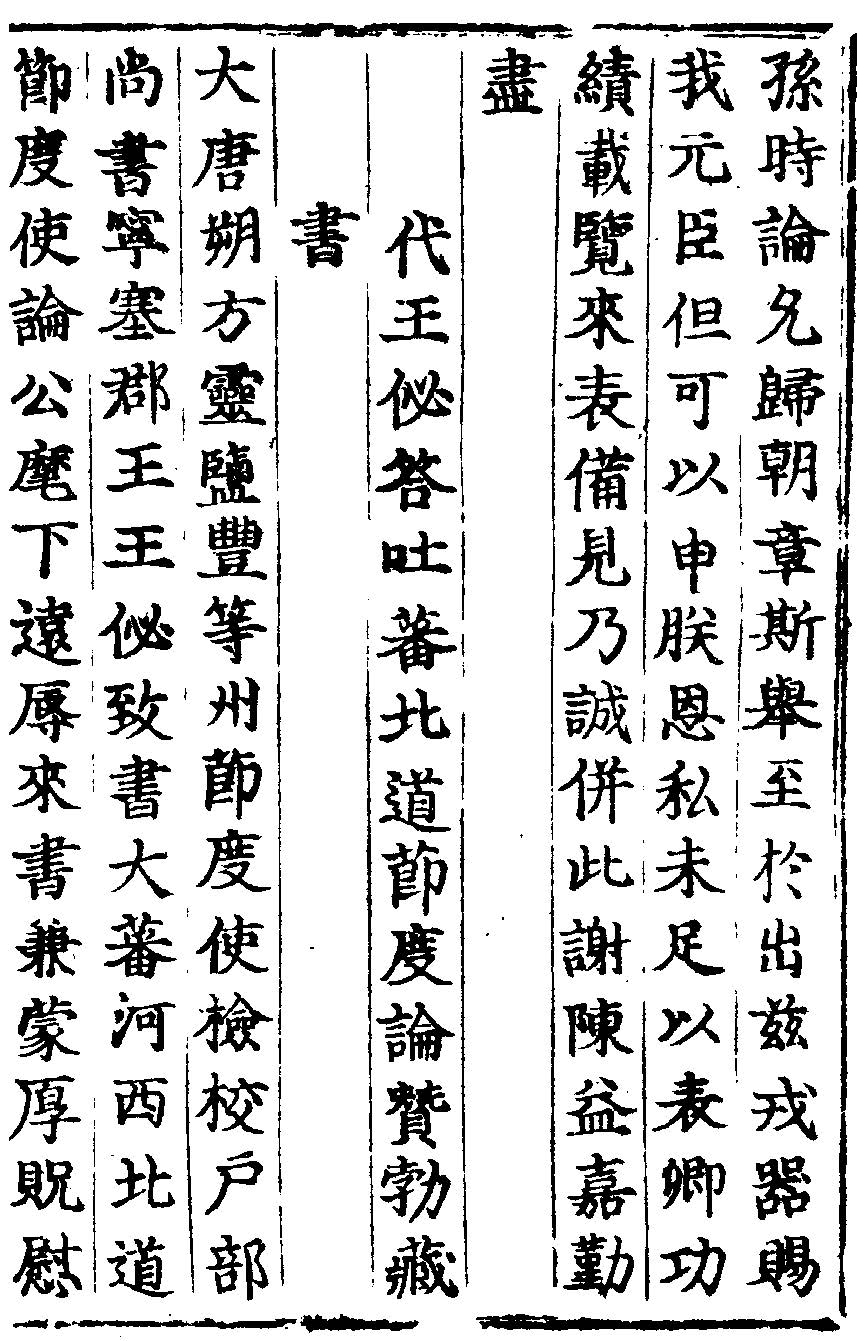 孫時論允歸朝章斯舉至於出兹戎器賜
我元臣但可以申朕恩私未足以表卿功
績載覽來表備見乃誠併此謝陳益嘉勤
盡
代王佖答吐蕃北道節度論贊勃藏
書
大唐朔方靈鹽豐等州節度使檢校户部
尚書寧塞郡王王佖致書大蕃河西北道
節度使論公麾下遠辱來書兼蒙厚貺慰